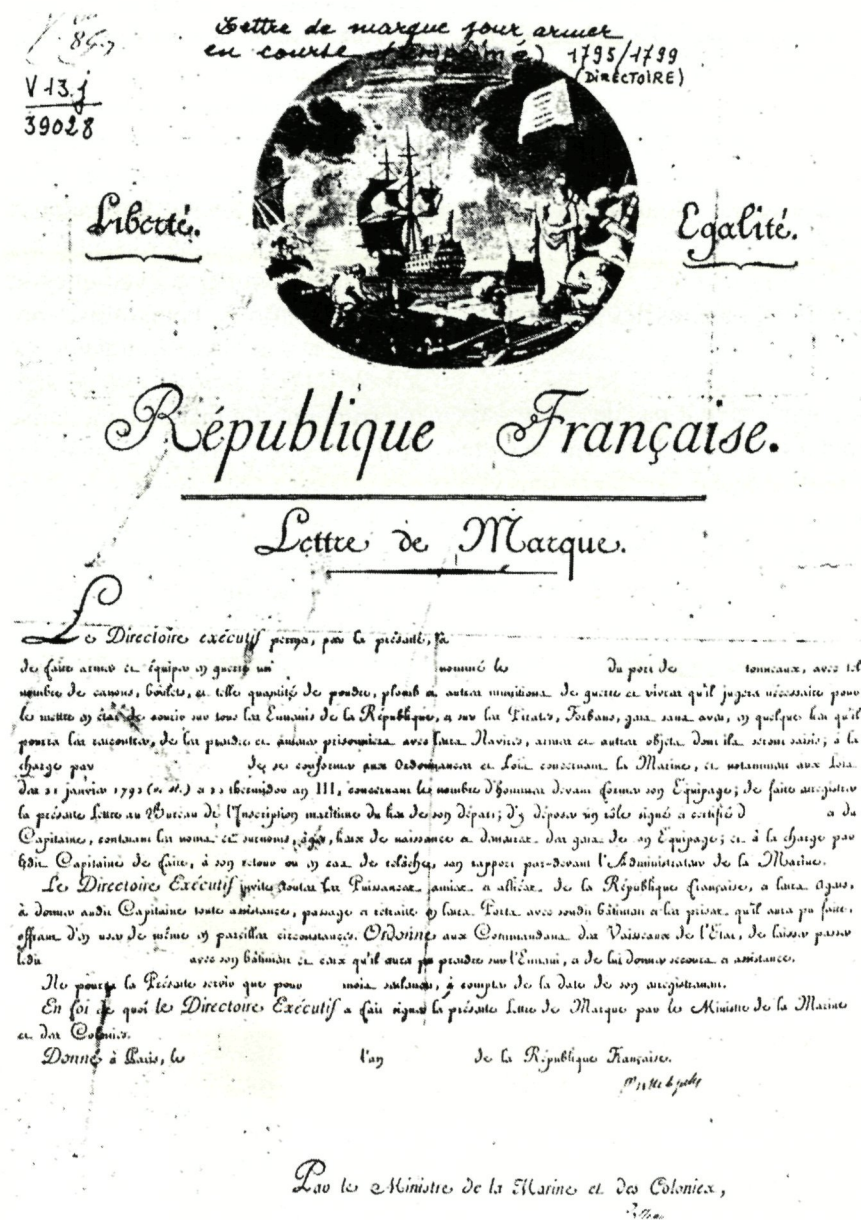 Lettre de marque pour armer
en course (Imprimé) 1795/1799
(DIRECTOIRE)
V 13.j
39028
Liberté.
Egalité.
République Française.
Lettre de Marque.
Le Directoire exécutif permet, par la présente, à
de faire armer et équiper en guerre un nommé le du port de tonneaux, avec tel
nombre de canons, boulets, et telle quantité de poudre, plomb et autres munitions de guerre et vivres qu'il jugera nécessaire pour
le mettre en état de courir sur tous les Ennemis de la République, et sur les Pirates, Forbans, gens sans aveu, en quelque lieu qu'il
pourra les rencontrer, de les prendre et amener prisonniers avec leurs Navires, armes et autres objets dont ils seront saisis; à la
charge par de se conformer aux Ordonnances et Lois concernant la Marine, et notamment aux Lois
des 31 janvier 1793 (v. st.) et 23 thermidor an III, concernant le nombre d'hommes devant former son Equipage; de faire enregistrer
la présente Lettre au Bureau de l'Inscription maritime du lieu de son départ; d'y déposer un rôle signé et certifié d et du
Capitaine, contenant les noms et surnoms, âges, lieux de naissance et demeures des gens de son Equipage; et à la charge par
ledit Capitaine de faire, à son retour ou en cas de relâche, son rapport par-devant l'Administrateur de la Marine.
Le Directoire Exécutif invite toutes les Puissances amies et alliées de la République française, et leurs Agens,
à donner audit Capitaine toute assistance, passage et retraite en leurs Ports avec sondit bâtiment et les prises qu'il aura pu faire,
offrant d'en user de même en pareilles circonstances. Ordonne aux Commandans des Vaisseaux de l'Etat, de laisser passer
ledit avec son bâtiment et ceux qu'il aura pu prendre sur l'Ennemi, et de lui donner secours et assistance.
Ne pourra la Présente servir que pour mois seulement, à compter de la date de son enregistrement.
En foi de quoi le Directoire Exécutif a fait signer la présente Lettre de Marque par le Ministre de la Marine
et des Colonies.
Donné à Paris, le l'an de la République Française.
Par le Ministre de la Marine et des Colonies,